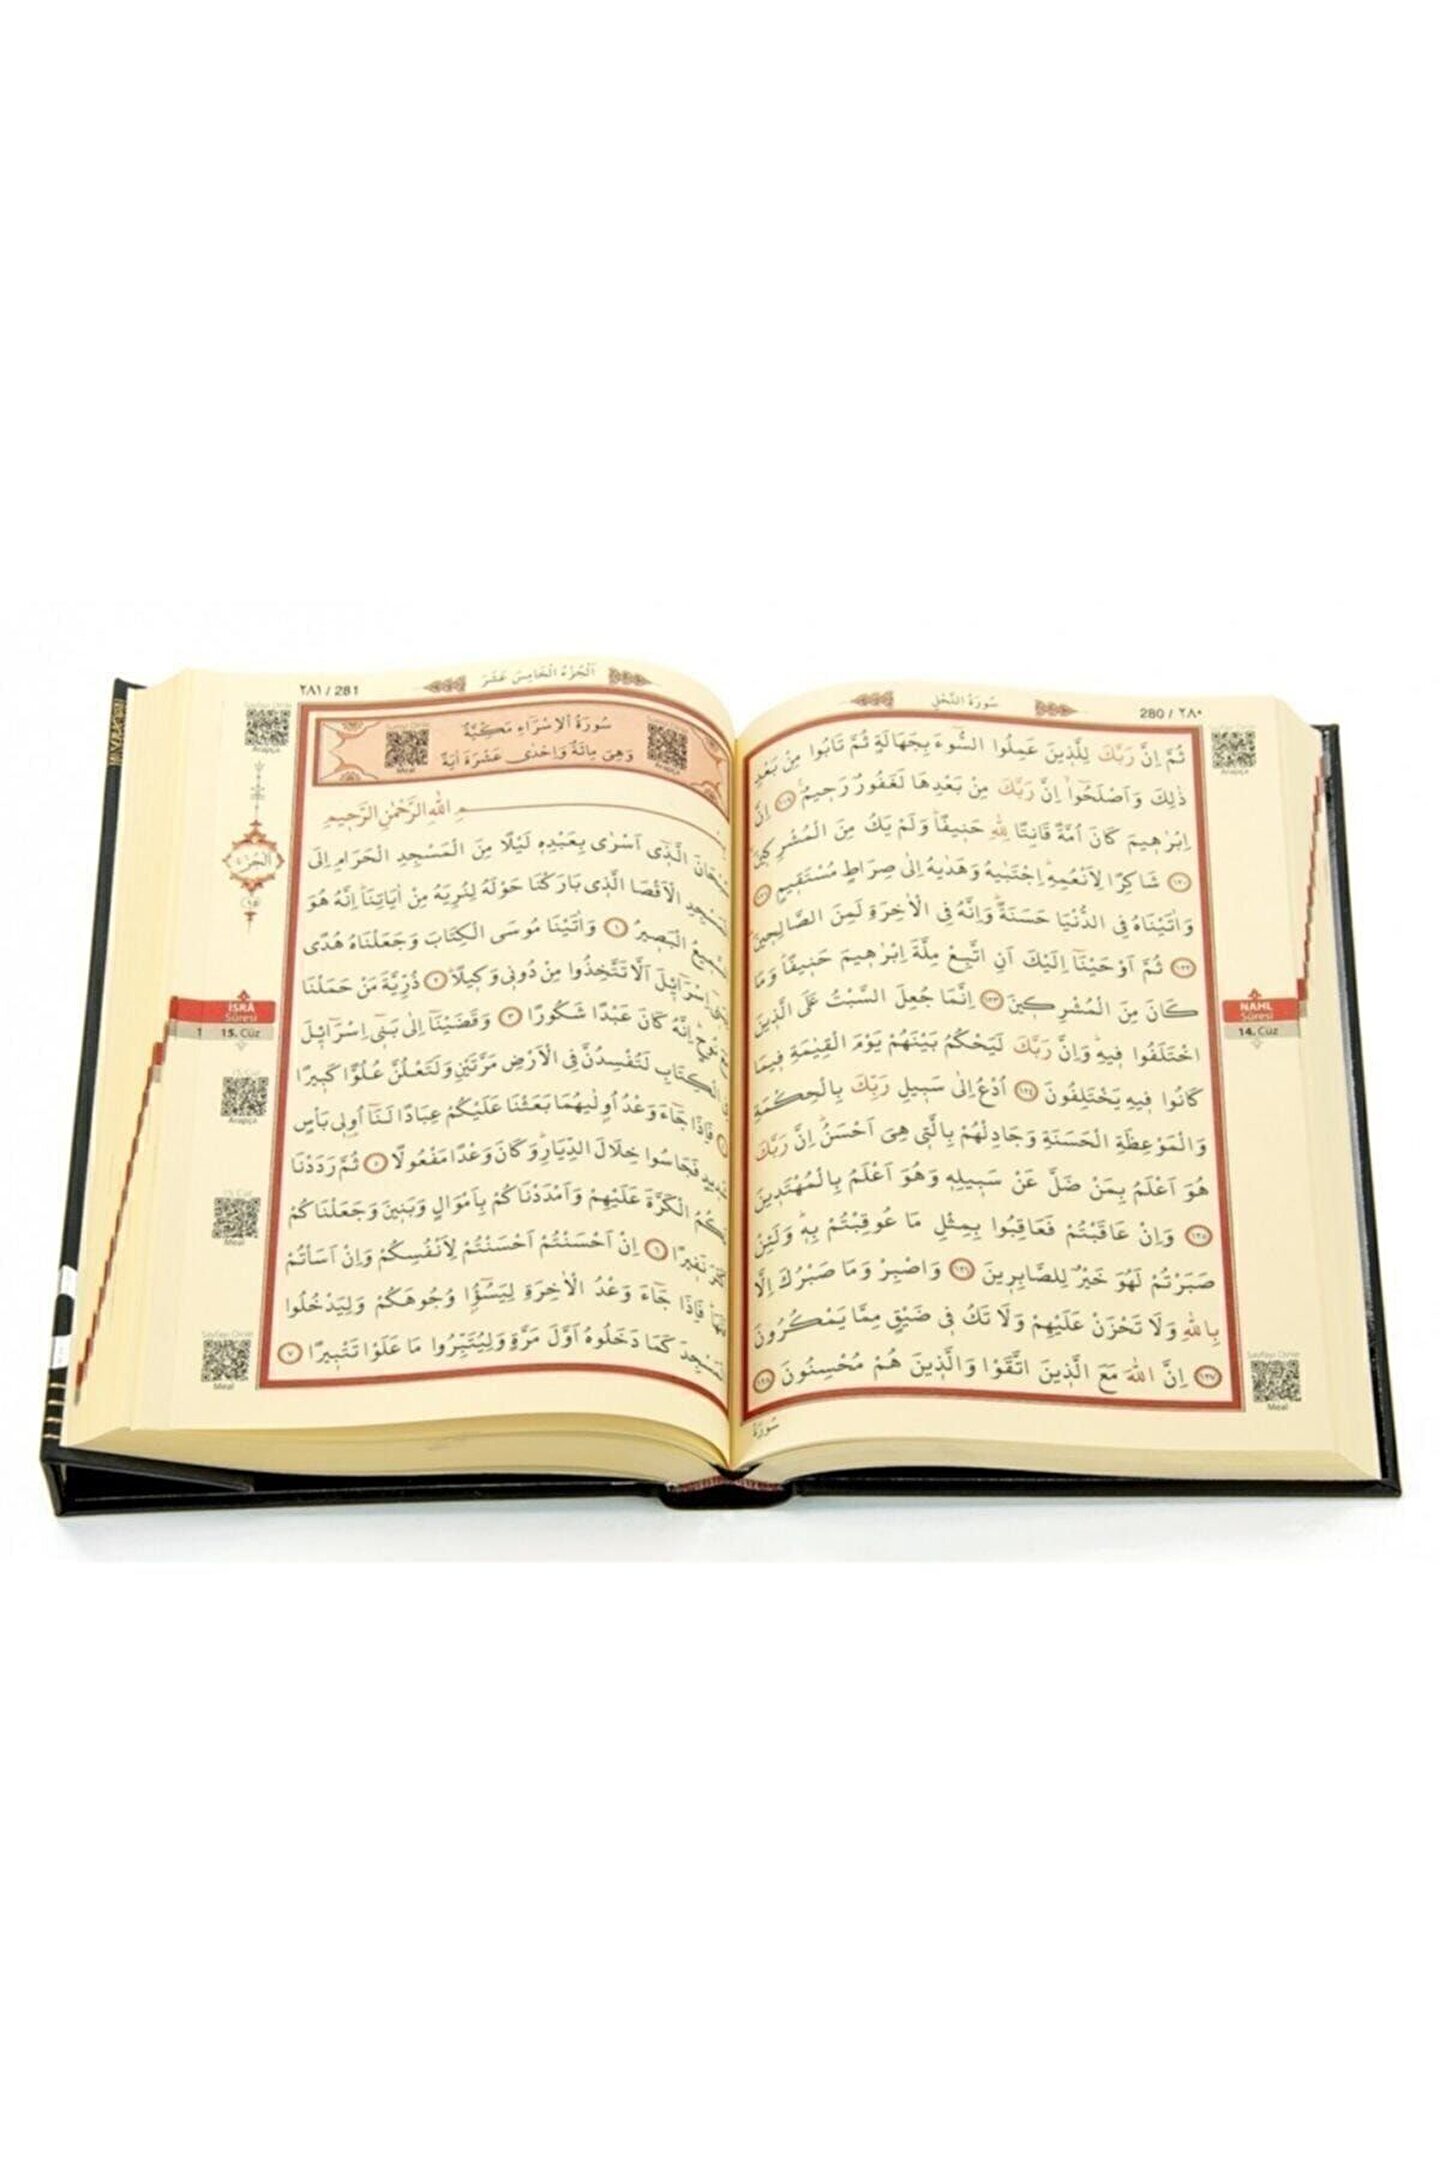 سُورَةُ النَّحْلِ
280 / ٢٨٠
ثُمَّ اِنَّ رَبَّكَ لِلَّذ۪ينَ عَمِلُوا السُّٓوءَ بِجَهَالَةٍ ثُمَّ تَابُوا مِنْ بَعْدِ
ذٰلِكَ وَاَصْلَحُٓوا اِنَّ رَبَّكَ مِنْ بَعْدِهَا لَغَفُورٌ رَح۪يمٌ ﴿١١٩﴾ اِنَّ
اِبْرٰه۪يمَ كَانَ اُمَّةً قَانِتًا لِلّٰهِ حَن۪يفًا وَلَمْ يَكُ مِنَ الْمُشْرِك۪ينَ
﴿١٢٠﴾ شَاكِرًا لِاَنْعُمِهِ اِجْتَبٰيهُ وَهَدٰيهُ اِلٰى صِرَاطٍ مُسْتَق۪يمٍ ﴿١٢١﴾
وَاٰتَيْنَاهُ فِي الدُّنْيَا حَسَنَةً وَاِنَّهُ فِي الْاٰخِرَةِ لَمِنَ الصَّالِح۪ينَ
﴿١٢٢﴾ ثُمَّ اَوْحَيْنَٓا اِلَيْكَ اَنِ اتَّبِعْ مِلَّةَ اِبْرٰه۪يمَ حَن۪يفًا وَمَا
كَانَ مِنَ الْمُشْرِك۪ينَ ﴿١٢٣﴾ اِنَّمَا جُعِلَ السَّبْتُ عَلَى الَّذ۪ينَ
اخْتَلَفُوا ف۪يهِ وَاِنَّ رَبَّكَ لَيَحْكُمُ بَيْنَهُمْ يَوْمَ الْقِيٰمَةِ ف۪يمَا
كَانُوا ف۪يهِ يَخْتَلِفُونَ ﴿١٢٤﴾ اُدْعُ اِلٰى سَب۪يلِ رَبِّكَ بِالْحِكْمَةِ
وَالْمَوْعِظَةِ الْحَسَنَةِ وَجَادِلْهُمْ بِالَّت۪ي هِيَ اَحْسَنُ اِنَّ رَبَّكَ
هُوَ اَعْلَمُ بِمَنْ ضَلَّ عَنْ سَب۪يلِه۪ وَهُوَ اَعْلَمُ بِالْمُهْتَد۪ينَ
﴿١٢٥﴾ وَاِنْ عَاقَبْتُمْ فَعَاقِبُوا بِمِثْلِ مَا عُوقِبْتُمْ بِه۪ وَلَئِنْ
صَبَرْتُمْ لَهُوَ خَيْرٌ لِلصَّابِر۪ينَ ﴿١٢٦﴾ وَاصْبِرْ وَمَا صَبْرُكَ اِلَّا
بِاللّٰهِ وَلَا تَحْزَنْ عَلَيْهِمْ وَلَا تَكُ ف۪ي ضَيْقٍ مِمَّا يَمْكُرُونَ
﴿١٢٧﴾ اِنَّ اللّٰهَ مَعَ الَّذ۪ينَ اتَّقَوْا وَالَّذ۪ينَ هُمْ مُحْسِنُونَ ﴿١٢٨﴾
سُورَةُ
Arapça
NAHL
Sûresi
14. Cüz
Sayfayı Dinle
Meal
اَلْجُزْءُ الْخَامِسَ عَشَرَ
٢٨١ / 281
سُورَةُ الْاِسْرَاءِ مَكِّيَّةٌ
وَهِيَ مِائَةٌ وَاِحْدٰى عَشْرَةَ اٰيَةً
Meal
Arapça
اللّٰهِ الرَّحْمٰنِ الرَّح۪يمِ
سُبْحَانَ الَّذ۪ٓي اَسْرٰى بِعَبْدِه۪ لَيْلًا مِنَ الْمَسْجِدِ الْحَرَامِ اِلَى
الْمَسْجِدِ الْاَقْصَا الَّذ۪ي بَارَكْنَا حَوْلَهُ لِنُرِيَهُ مِنْ اٰيَاتِنَا اِنَّهُ هُوَ
السَّم۪يعُ الْبَص۪يرُ ﴿١﴾ وَاٰتَيْنَا مُوسَى الْكِتَابَ وَجَعَلْنَاهُ هُدًى
لِبَن۪ٓي اِسْرَٓائ۪لَ اَلَّا تَتَّخِذُوا مِنْ دُون۪ي وَك۪يلًا ﴿٢﴾ ذُرِّيَّةَ مَنْ حَمَلْنَا
مَعَ نُوحٍ اِنَّهُ كَانَ عَبْدًا شَكُورًا ﴿٣﴾ وَقَضَيْنَٓا اِلٰى بَن۪ٓي اِسْرَٓائ۪لَ
فِي الْكِتَابِ لَتُفْسِدُنَّ فِي الْاَرْضِ مَرَّتَيْنِ وَلَتَعْلُنَّ عُلُوًّا كَب۪يرًا
فَاِذَا جَٓاءَ وَعْدُ اُو۫لٰيهُمَا بَعَثْنَا عَلَيْكُمْ عِبَادًا لَنَٓا اُو۬ل۪ي بَأْسٍ
شَد۪يدٍ فَجَاسُوا خِلَالَ الدِّيَارِ وَكَانَ وَعْدًا مَفْعُولًا ﴿٥﴾ ثُمَّ رَدَدْنَا
لَكُمُ الْكَرَّةَ عَلَيْهِمْ وَاَمْدَدْنَاكُمْ بِاَمْوَالٍ وَبَن۪ينَ وَجَعَلْنَاكُمْ
اَكْثَرَ نَف۪يرًا ﴿٦﴾ اِنْ اَحْسَنْتُمْ اَحْسَنْتُمْ لِاَنْفُسِكُمْ وَاِنْ اَسَأْتُمْ
فَلَهَا فَاِذَا جَٓاءَ وَعْدُ الْاٰخِرَةِ لِيَسُٓؤُ۫ا وُجُوهَكُمْ وَلِيَدْخُلُوا
الْمَسْجِدَ كَمَا دَخَلُوهُ اَوَّلَ مَرَّةٍ وَلِيُتَبِّرُوا مَا عَلَوْا تَتْب۪يرًا ﴿٧﴾
Sayfayı Dinle
Arapça
اَلْجُزْءُ
١٥
İSRÂ
Sûresi
1 15. Cüz
Arapça
Meal
Sayfayı Dinle
Meal